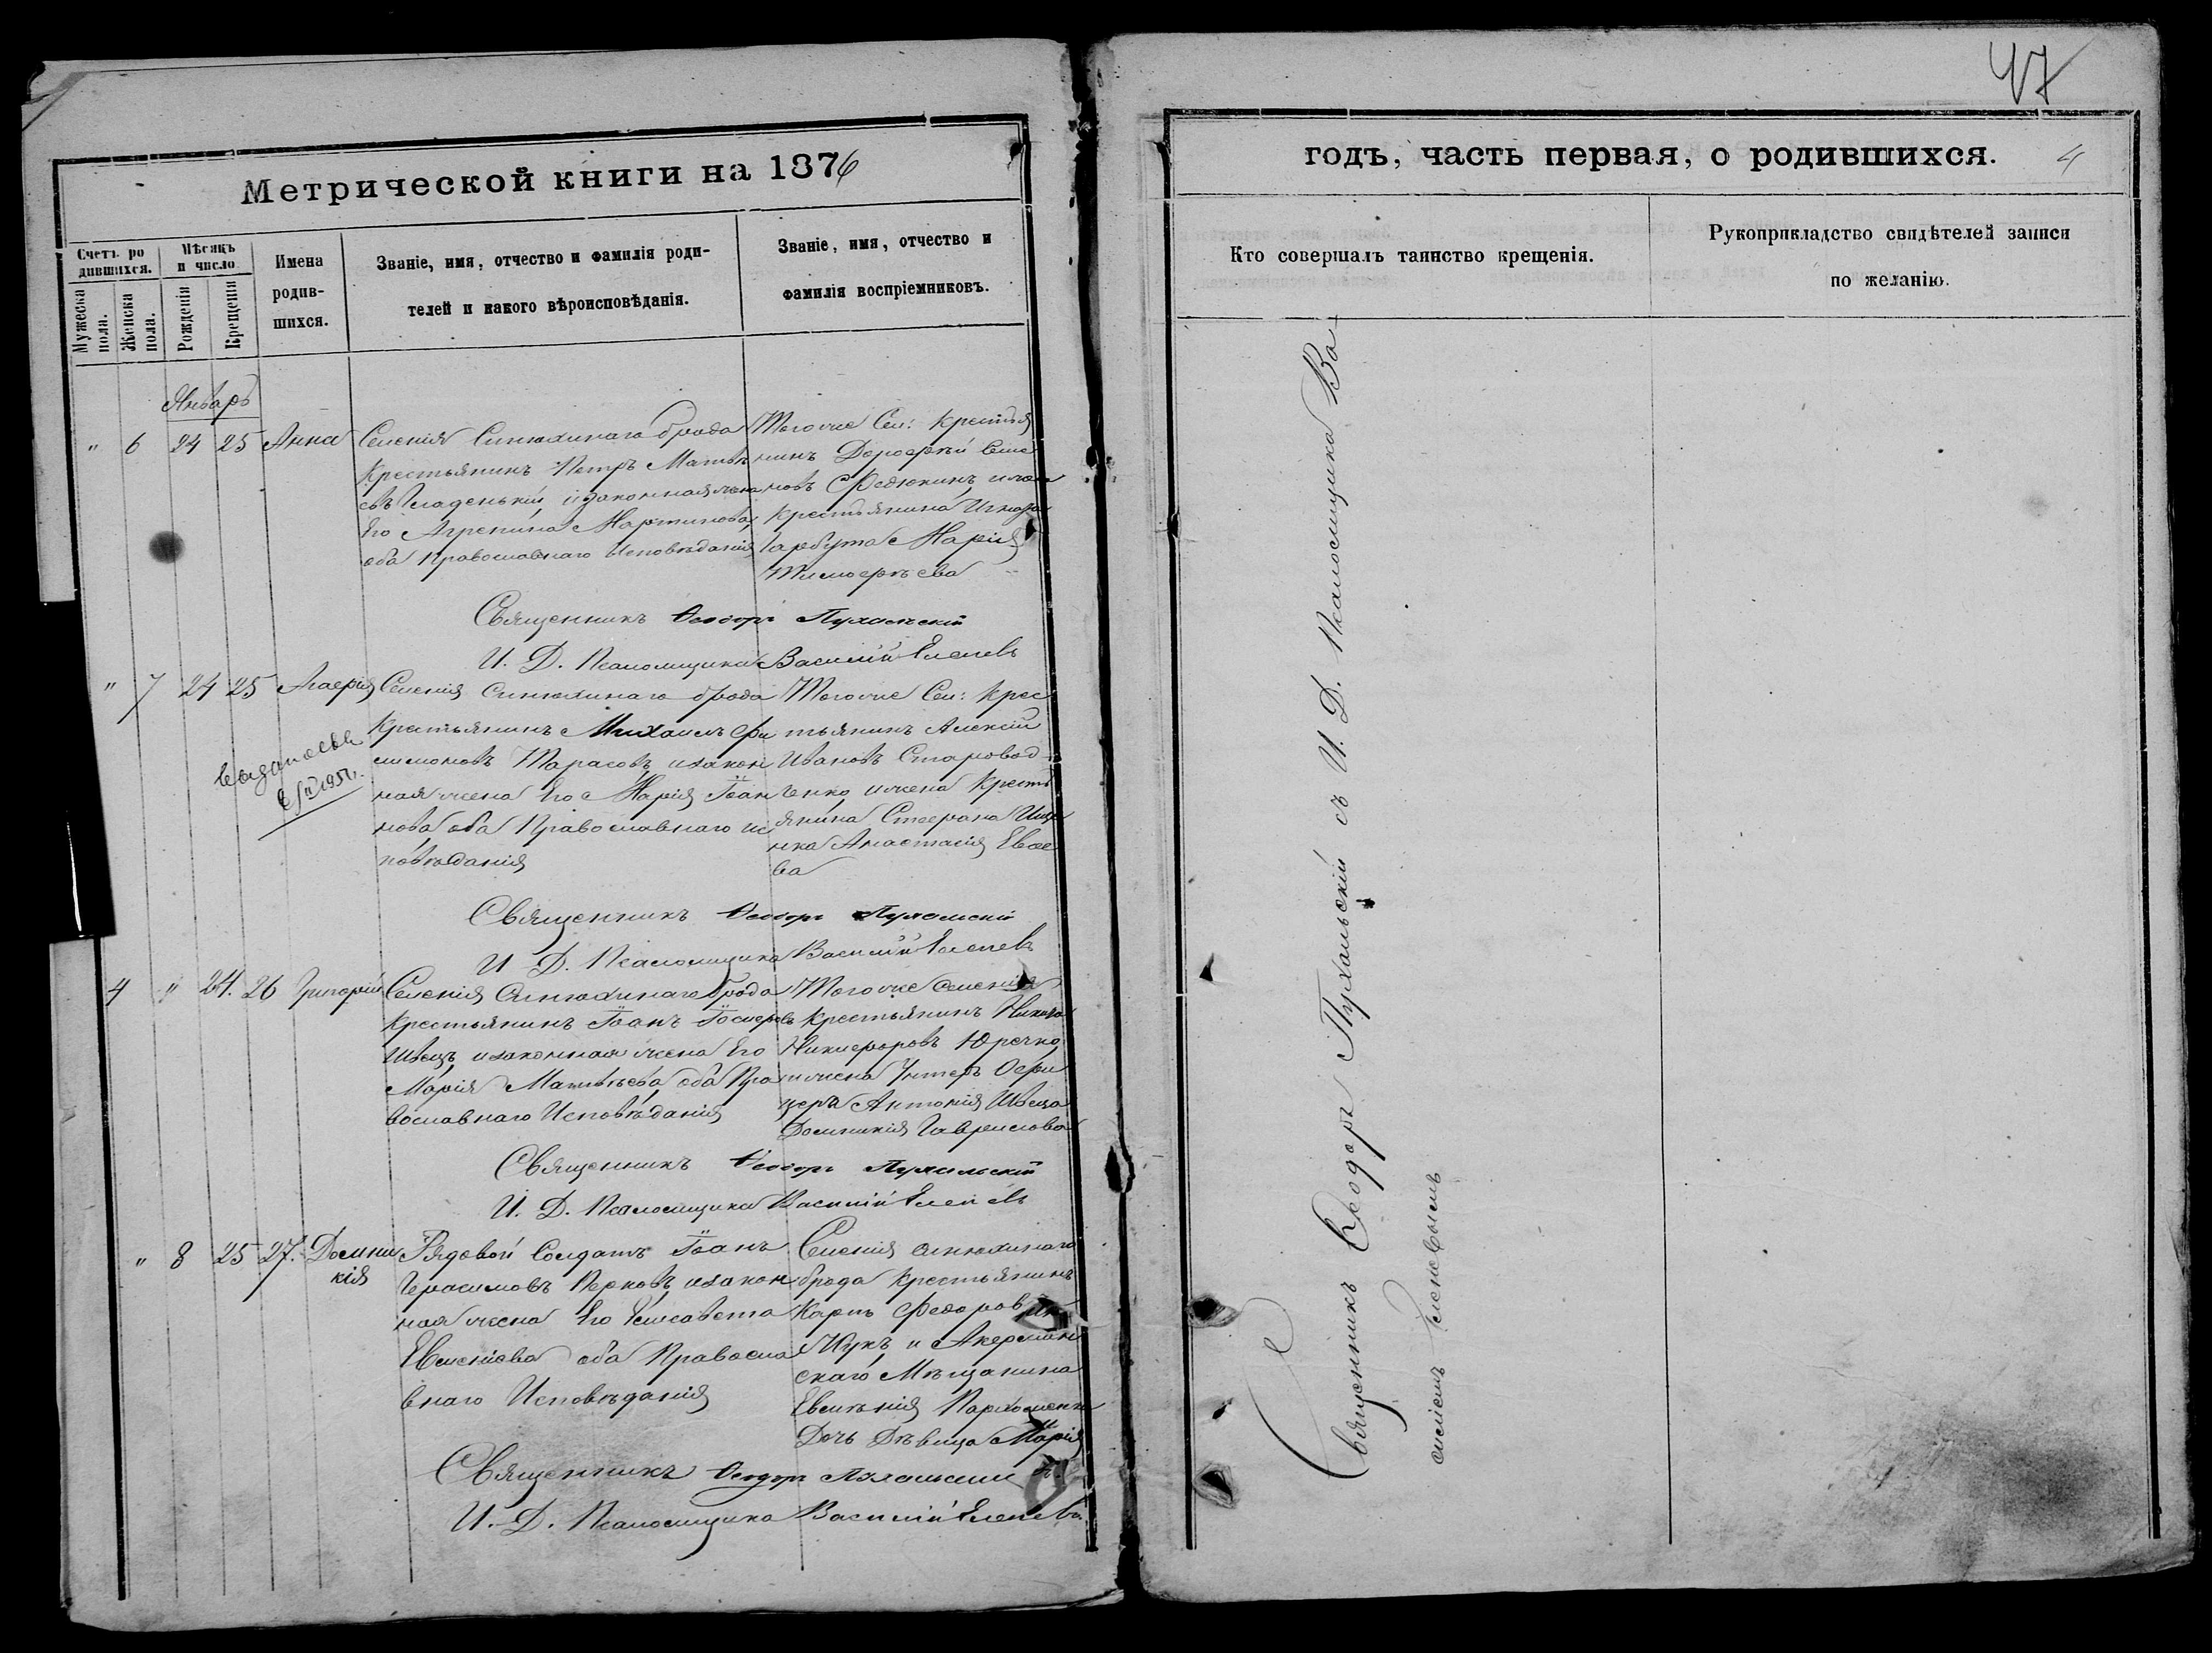 47
Метрической книги на 1876
годъ, часть первая, о родившихся. 4
Счетъ родившихся.
Мужеска пола.
Женска пола.
Мѣсяцъ и число
Рожденія
Крещенія
Имена родившихся.
Званіе, имя, отчество и фамилія родителей и какого вѣроисповѣданія.
Званіе, имя, отчество и фамилія воспріемниковъ.
Кто совершалъ таинство крещенія.
Рукоприкладство свидѣтелей записи по желанію.
Январь
" 6 24 25 Анна
Селенія Синюхинаго брода
Крестьянинъ Петръ Матвѣ
евъ Гладенькій и законная жена
Его Агрепина Мартинова,
оба Православнаго Исповѣданія
Тогоже Сел: Крестья
нинъ Дорофѣй Семе
новъ Федюкинъ, и жена
Крестьянина Игната
Гарбуза Марія
Тимофѣева
Священникъ Ѳеодоръ Пухальскій
И. Д. Псаломщика Василій Еленевъ
" 7 24 25 Агафія
Селенія Синюхинаго брода
Крестьянинъ Михаилъ Фи
лимоновъ Тарасовъ, и закон
ная жена Его Марія Іоан
нова, оба Православнаго ис
повѣданія
Тогоже Сел: Крес
тьянинъ Алексій
Ивановъ Старовод
ченко, и жена Кресть
янина Стефана Ище
нка Анастасія
ва
1951 г.
Священникъ Ѳеодоръ Пухальскій
И. Д. Псаломщика Василій Еленевъ
4 " 24. 26 Григорій
Селенія Синюхинаго брода
Крестьянинъ Іоанъ Іосифовъ
Швецъ, и законная жена Его
Марія Матвѣева, оба Пра
вославнаго Исповѣданія
Тогоже Селенія
Крестьянинъ
Никифоровъ Юречко,
и жена Унтеръ Офи
цера Антонія Швеца
Домникія Гаврилова
Священникъ Ѳеодоръ Пухальскій
И. Д. Псаломщика Василій Еленевъ
" 8 25 27. Домни
кія
Рядовой Солдатъ Іоанъ
Герасимовъ и закон
ная жена Его Елисавета
Евменіева оба Правосла
внаго Исповѣданія
Селенія Синюхинаго
брода Крестьянинъ
Карпъ Федоровъ
Жукъ, и Акерман
скаго Мѣщанина
Евменія Пархоменка
Дочь Дѣвица Марія
Священникъ Ѳеодоръ Пухальскій
И. Д. Псаломщика Василій Еленевъ.
Священникъ Ѳеодоръ Пухальскій съ И. Д. Псаломщика Ва
силіемъ Еленевымъ